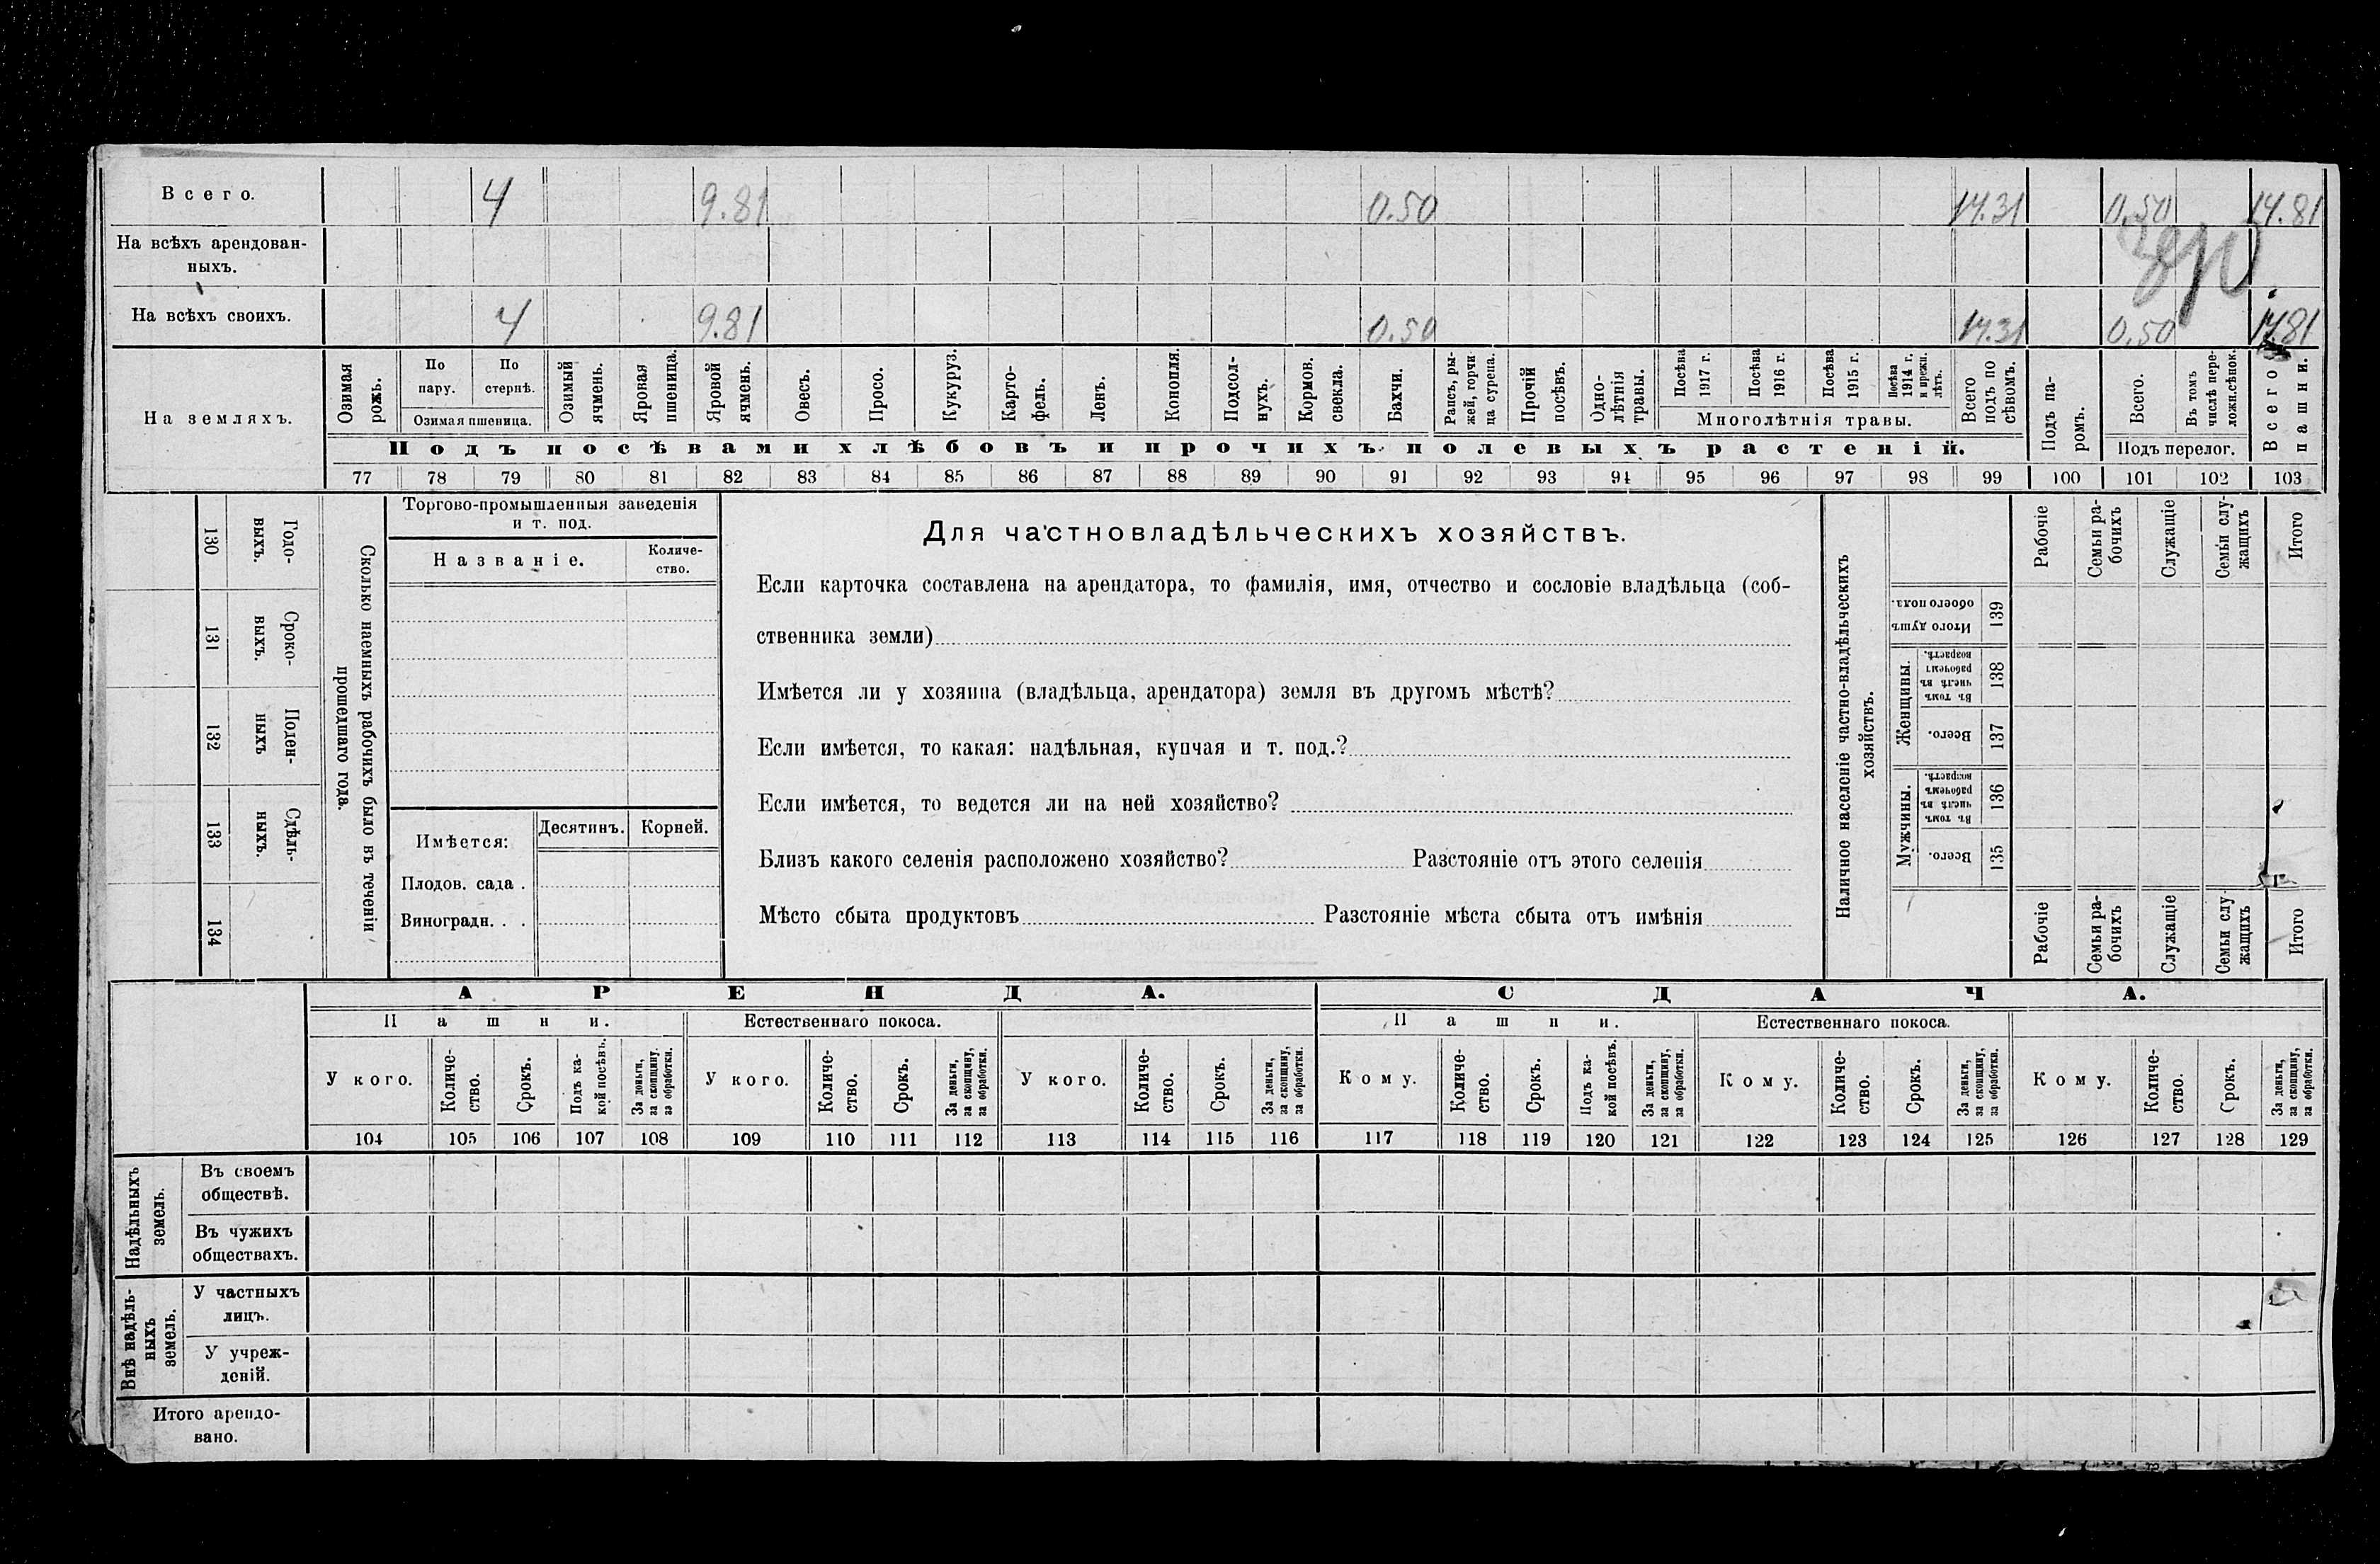 Всего. 4 9.81 0.50 14.31 0.50 14.81
На всѣхъ арендован-
ныхъ.
На всѣхъ своихъ. 4 9.81 0.50 14.31 0.50 14.81
На земляхъ.
Озимая рожь.
По пару.
По стернѣ.
Озимая пшеница.
Озимый ячмень.
Яровая пшеница.
Яровой ячмень.
Овесъ.
Просо.
Кукуруз.
Карто-
фель.
Ленъ.
Конопля.
Подсол-
нухъ.
Кормов.
свекла.
Бахчи.
Рапсъ, ры-
жей, горчи-
ца сурепа.
Прочій
посѣвъ.
Одно-
лѣтнія
травы.
Посѣва
1917 г.
Посѣва
1916 г.
Посѣва
1915 г.
Посѣва
1914 г.
и прежн.
лѣтъ.
Многолѣтнія травы.
Всего
подъ по
сѣвомъ.
Подъ па-
ромъ.
Всего.
Въ томъ
числѣ пере-
ложн.сѣнок.
Подъ перелог.
Всего
пашни.
Подъ посѣвами хлѣбовъ и прочихъ полевыхъ растеній.
77 78 79 80 81 82 83 84 85 86 87 88 89 90 91 92 93 94 95 96 97 98 99 100 101 102 103
130
Годо-
выхъ.
131
Сроко-
выхъ.
132
Поден-
ныхъ
133
Сдѣль-
ныхъ.
134
Сколько наемныхъ рабочихъ было въ теченіи
прошедшаго года.
Торгово-промышленныя заведенія
и т. под.
Названіе.
Количе-
ство.
Имѣется:
Десятинъ.
Корней.
Плодов. сада .
Виноградн. . .
Для частновладѣльческихъ хозяйствъ.
Если карточка составлена на арендатора, то фамилія, имя, отчество и сословіе владѣльца (соб-
ственника земли)
Имѣется ли у хозяина (владѣльца, арендатора) земля въ другомъ мѣстѣ?
Если имѣется, то какая: надѣльная, купчая и т. под.?
Если имѣется, то ведется ли на ней хозяйство?
Близъ какого селенія расположено хозяйство? Разстояніе отъ этого селенія
Мѣсто сбыта продуктовъ Разстояніе мѣста сбыта отъ имѣнія
Наличное населеніе частно-владѣльческихъ
хозяйствъ.
Рабочіе
Семьи ра-
бочихъ
Служащіе
Семьи слу-
жащихъ
Итого
Итого душъ
обоего пола.
139
Женщины.
Въ томъ
числѣ въ
рабочемъ
возрастѣ.
138
Всего.
137
Мужчины.
Въ томъ
числѣ въ
рабочемъ
возрастѣ.
136
Всего.
135
Рабочіе
Семьи ра-
бочихъ
Служащіе
Семьи слу-
жащихъ
Итого
АРЕНДА. СДАЧА.
Пашни. Естественнаго покоса. Пашни. Естественнаго покоса.
У кого.
Количе-
ство.
Срокъ.
Подъ ка-
кой посѣвъ.
За деньги,
за скопщину,
за обработки.
У кого.
Количе-
ство.
Срокъ.
За деньги,
за скопщину,
за обработки.
У кого.
Количе-
ство.
Срокъ.
За деньги,
за скопщину,
за обработки.
Кому.
Количе-
ство.
Срокъ.
Подъ ка-
кой посѣвъ.
За деньги,
за скопщину,
за обработки.
Кому.
Количе-
ство.
Срокъ.
За деньги,
за скопщину,
за обработки.
Кому.
Количе-
ство.
Срокъ.
За деньги,
за скопщину,
за обработки.
104 105 106 107 108 109 110 111 112 113 114 115 116 117 118 119 120 121 122 123 124 125 126 127 128 129
Надѣльныхъ
земель.
Въ своемъ
обществѣ.
Въ чужихъ
обществахъ.
Внѣ надѣль-
ныхъ
земель.
У частныхъ
лицъ.
У учреж-
деній.
Итого арендо-
вано.